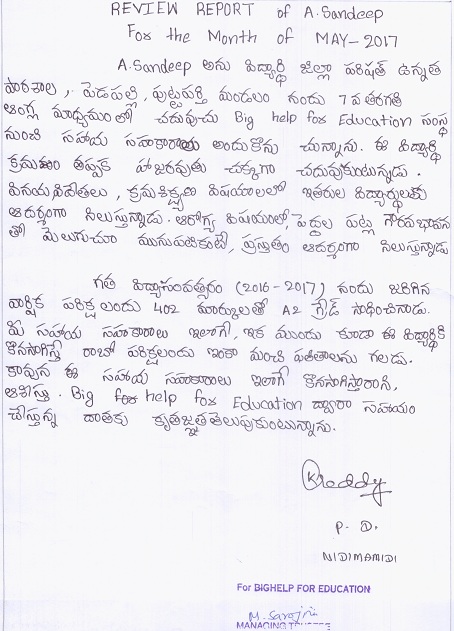 REVIEW REPORT of A.Sandeep
For the Month of MAY-2017
A.Sandeep అను విద్యార్థి జిల్లా పరిషత్ ఉన్నత
పాఠశాల, పెడపల్లి, పుట్టపర్తి మండలం నందు 7వ తరగతి
ఆంగ్ల మాధ్యమంలో చదువుచు Big help for Education సంస్థ
నుంచి సహాయ సహకారాలు అందుకొను చున్నాను. ఈ విద్యార్థి
క్రమం తప్పక హాజరవుతు చక్కగా చదువుకుంటున్నడు.
వినయవిదేతలు, క్రమశిక్షణ విషయాలలో ఇతరుల విద్యార్థులకు
ఆదర్శంగా నిలుస్తున్నాడు. ఆరోగ్య విషయంలో, పెద్దల పట్ల గౌరవభావన
తో మెలుగుచూ మునుపటికంటే, ప్రస్తుతం ఆదర్శంగా నిలుస్తున్నాడు
గత విద్యాసంవత్సరం (2016-2017) నందు జరిగిన
వార్షిక పరిక్షలందు 402 మార్కులతో A2 గ్రేడ్ సాధించినాడు.
మీ సహాయ సహకారాలు ఇలాగే, ఇక ముందు కూడా ఈ విద్యార్థికి
కొనసాగిస్తే రాబో పరిక్షలందు ఇంకా మంచి ఫలితాలను గలడు.
కావున ఈ సహాయ సహకారాలు ఇలాగే కొనసాగిస్తారాని,
ఆశిస్తు. Big for help for Education ద్వారా సహాయం
చేస్తున్న దాతకు కృతజ్ఞత తెలుపుకుంటున్నాను.
KReddy
P. D.
NIDIMAMIDI
For BIGHELP FOR EDUCATION
M. Sarojni
MANAGING TRUSTEE